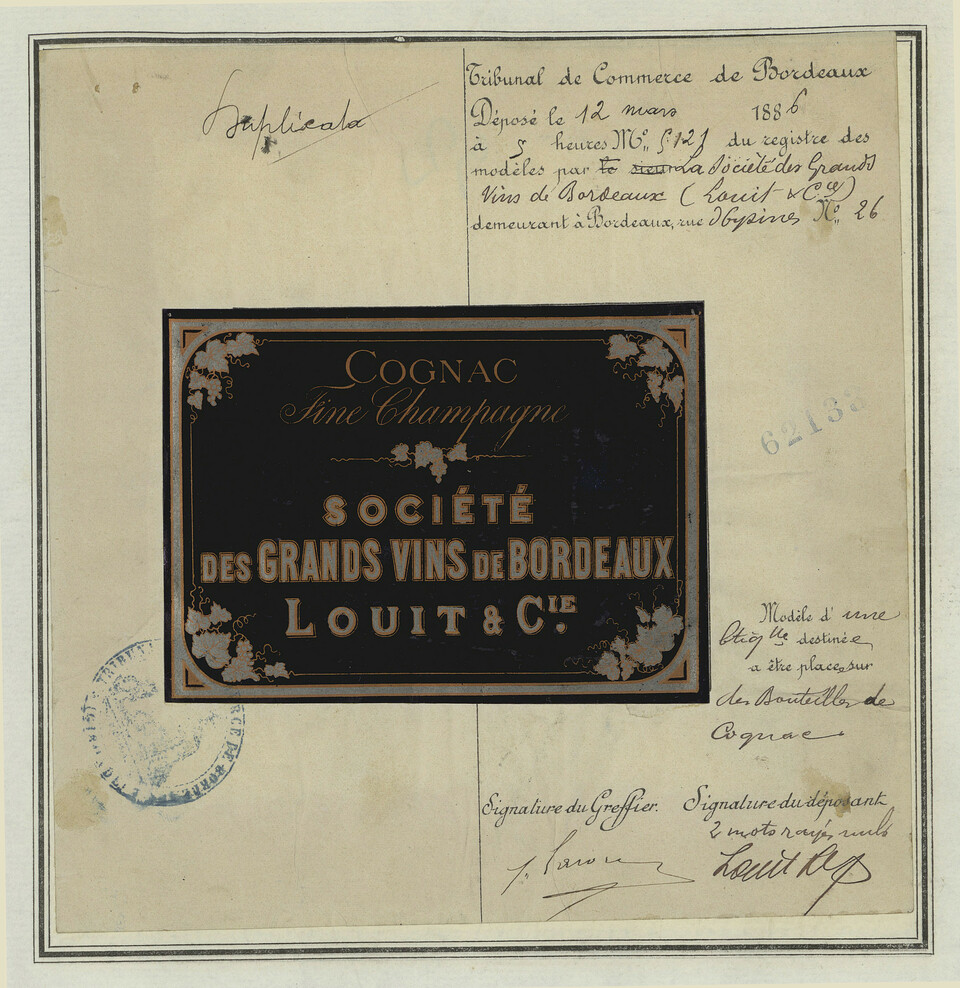 Duplicata
Tribunal de Commerce de Bordeaux
Déposé le 12 mars 1886
à 5 heures No 5121 du registre des
modèles par le sieur La Société des Grands
Vins de Bordeaux (Louit & Cie)
demeurant à Bordeaux, rue No 26
COGNAC
Fine Champagne
SOCIÉTÉ
DES GRANDS VINS DE BORDEAUX
LOUIT & CIE.
62133
Modèle d'une
étiqtte destinée
a être placée sur
des Bouteilles de
Cognac
TRIBUNAL COMMERCE DE BORDEAUX
Signature du Greffier. Signature du déposant
2 mots rayés nuls
Louit